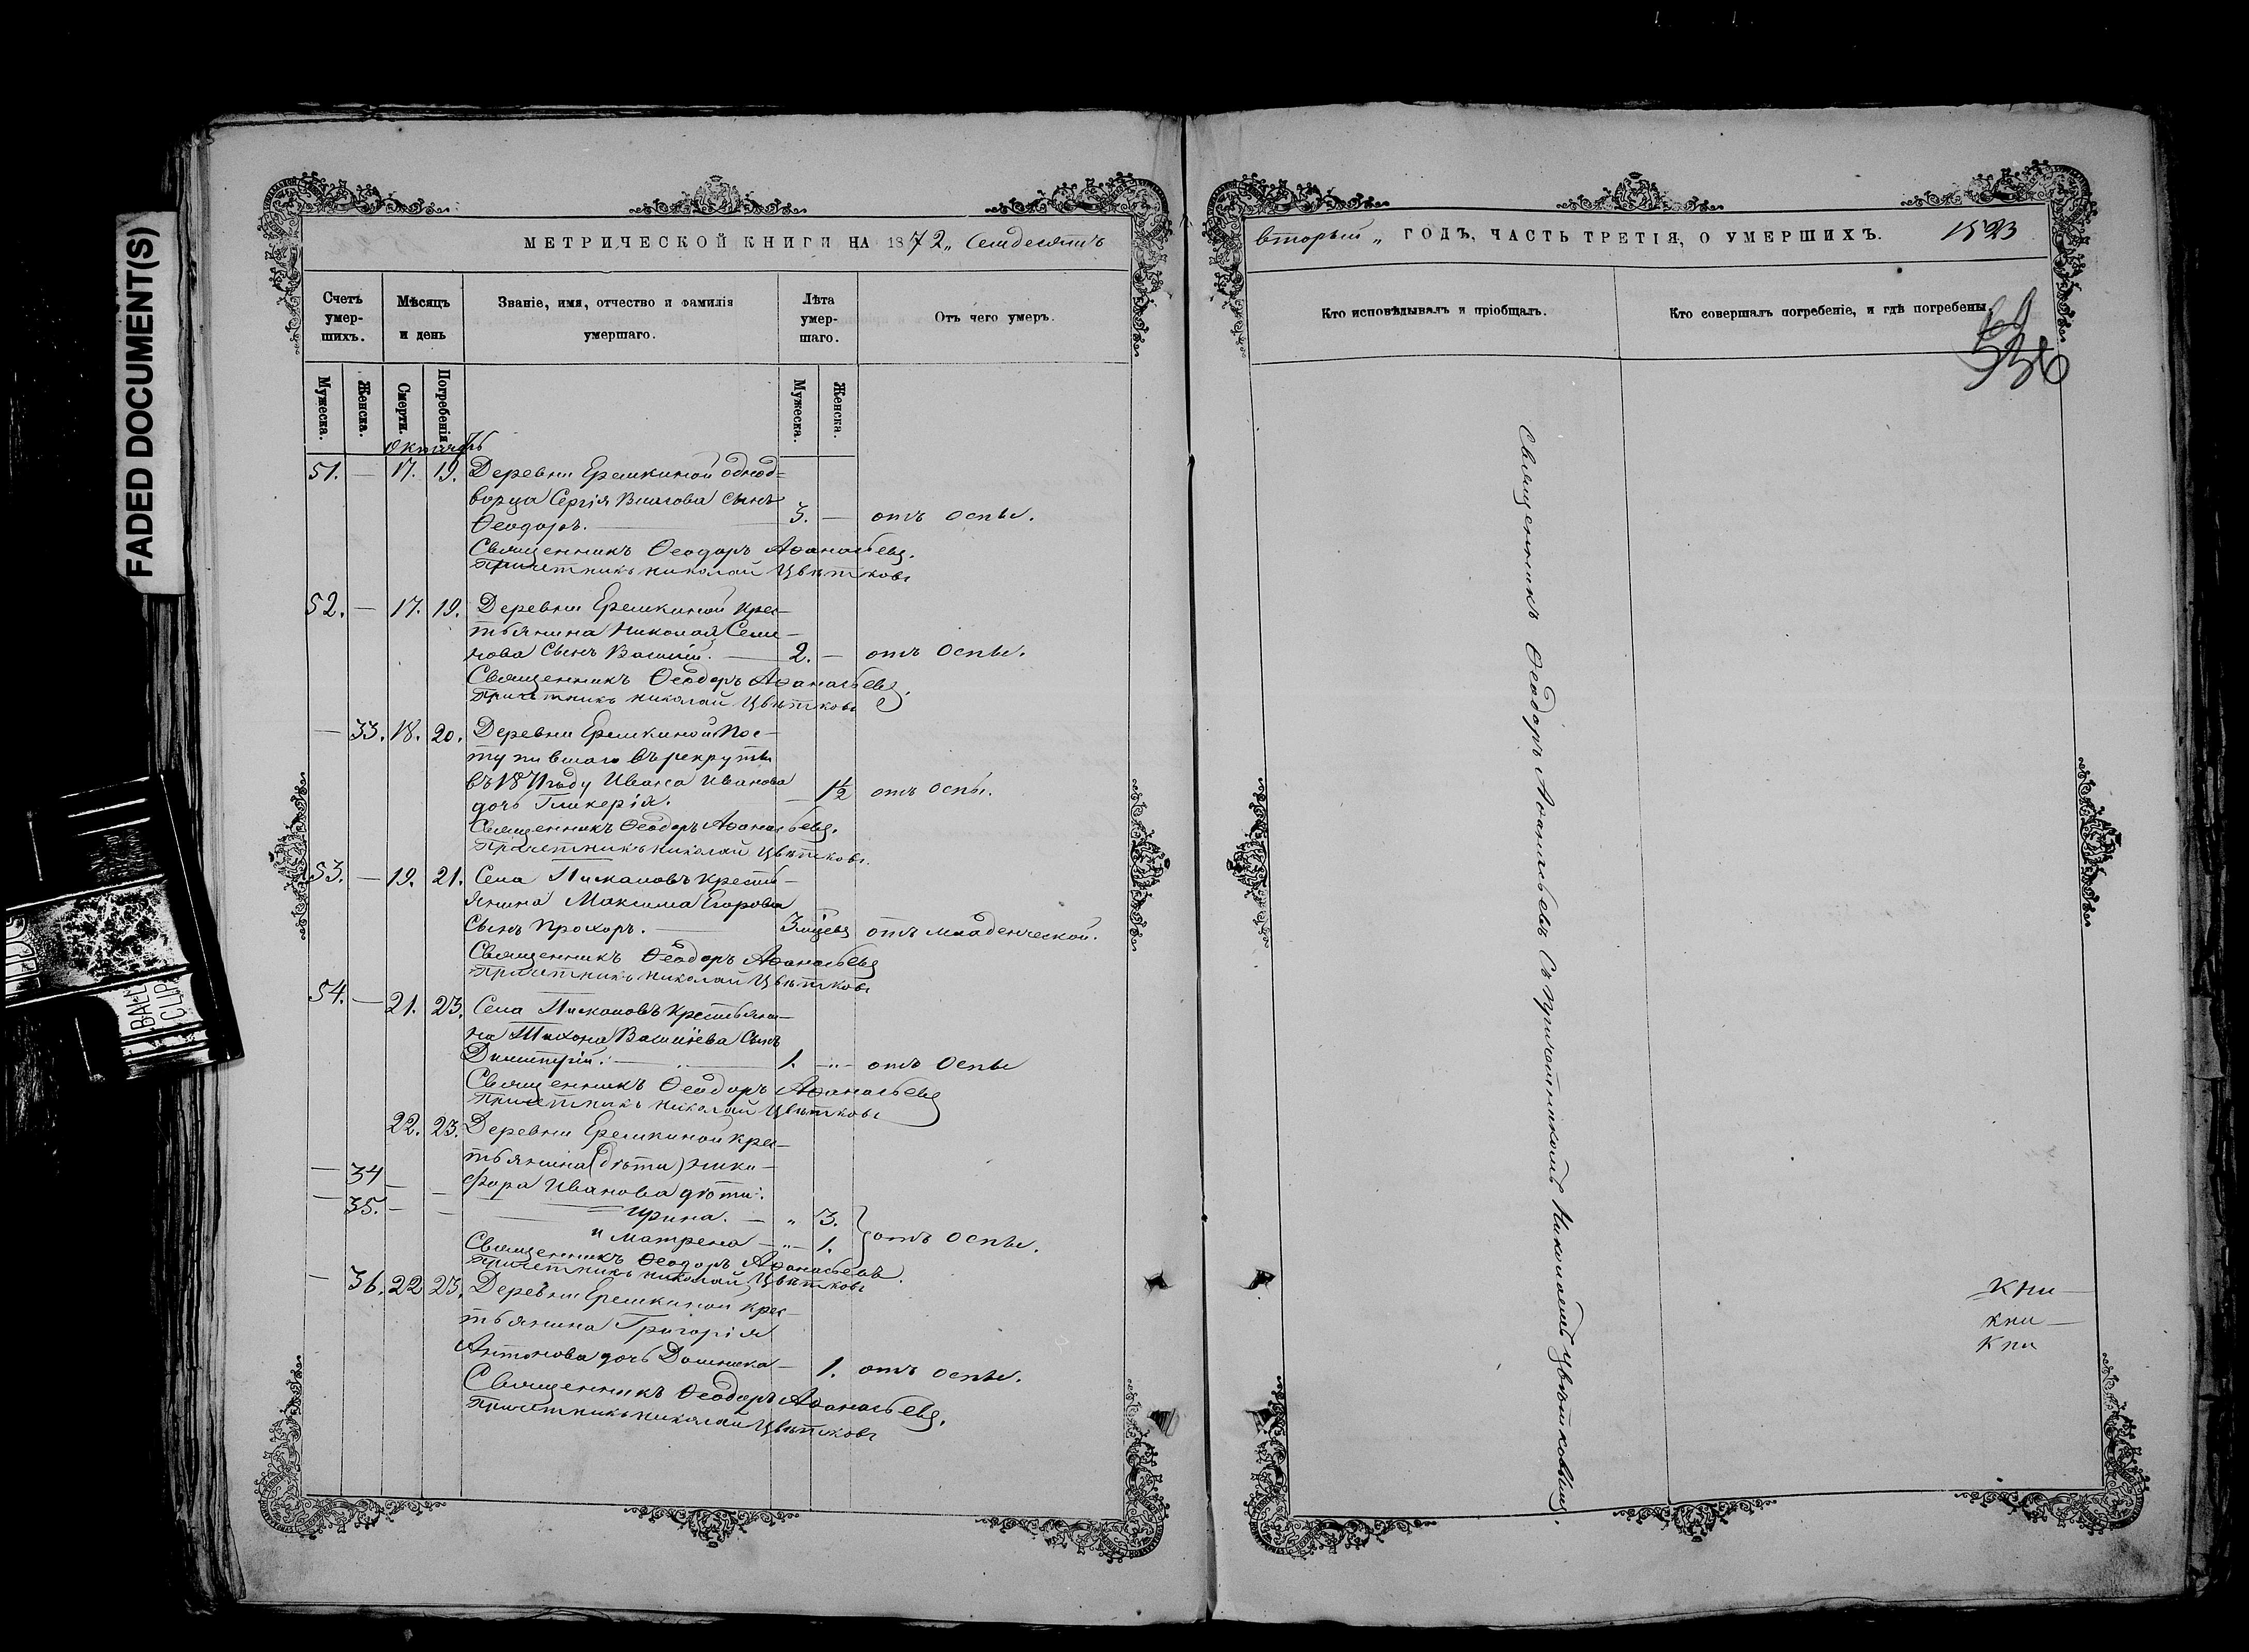 FADED DOCUMENT(S)
МЕТРИЧЕСКОЙ КНИГИ НА 1872 „ Семдесятъ
Счетъ умер-шихъ.
Мѣсяцъ и день
Званіе, имя, отчество и фамилія умершаго.
Лѣта умер-шаго.
Отъ чего умеръ.
Мужеска.
Женска.
Смерти.
Погребенія.
Мужеска.
Женска.
Октябрь
51. — 17. 19. Деревни Еремкиной однод-
ворца Сергія Власова сынъ
Ѳеодоръ. — 3. — отъ оспы.
Священникъ Ѳеодоръ Аѳанасьевъ.
Причетникъ Николай Цвѣтковъ
52. — 17. 19. Деревни Еремкиной крес-
тьянина Николая Семе-
нова сынъ Василій. — 2. — отъ Оспы.
Священникъ Ѳеодоръ Аѳанасьевъ.
Причетникъ Николай Цвѣтковъ
— 33. 18. 20. Деревни Еремкиной Пос-
тупившаго въ рекруты
въ 1871 году Ивана Иванова
дочь Гликерія. — 1½ отъ оспы.
Священникъ Ѳеодоръ Аѳанасьевъ.
Причетникъ Николай Цвѣтковъ.
53. — 19. 21. Села крестья-
янина Максима Егорова
Сынъ Прохоръ. — 3 отъ младенческой.
Священникъ Ѳеодоръ Аѳанасьевъ
Причетникъ Николай Цвѣтковъ
54. — 21. 23. Села крестьяни-
на Тихона Васильева сынъ
Димитрій. — 1. — отъ Оспы
Священникъ Ѳеодоръ Аѳанасьевъ
Причетникъ Николай Цвѣтковъ
22. 23. Деревни Еремкиной крес-
тьянина (дѣти) Ники-
— 34 — — фора Иванова дѣти:
— 35. — — Ирина. — „ 3.
и Матрена — „ — 1. } отъ оспы.
Священникъ Ѳеодоръ Аѳанасьевъ.
Причетникъ Николай Цвѣтковъ
— 36. 22 23. Деревни Еремкиной крес-
тьянина Григорія
Антонова дочь Домника — 1. отъ оспы.
Священникъ Ѳеодоръ Аѳанасьевъ.
Причетникъ Николай Цвѣтковъ
вторый „ ГОДЪ, ЧАСТЬ ТРЕТІЯ, О УМЕРШИХЪ. 1523
Кто исповѣдывалъ и пріобщалъ.
Кто совершалъ погребеніе, и гдѣ погребены.
536
Священникъ Ѳеодоръ Аѳанасьевъ съ причетникомъ Николаемъ Цвѣтковымъ.
Кни —
кни —
Кни